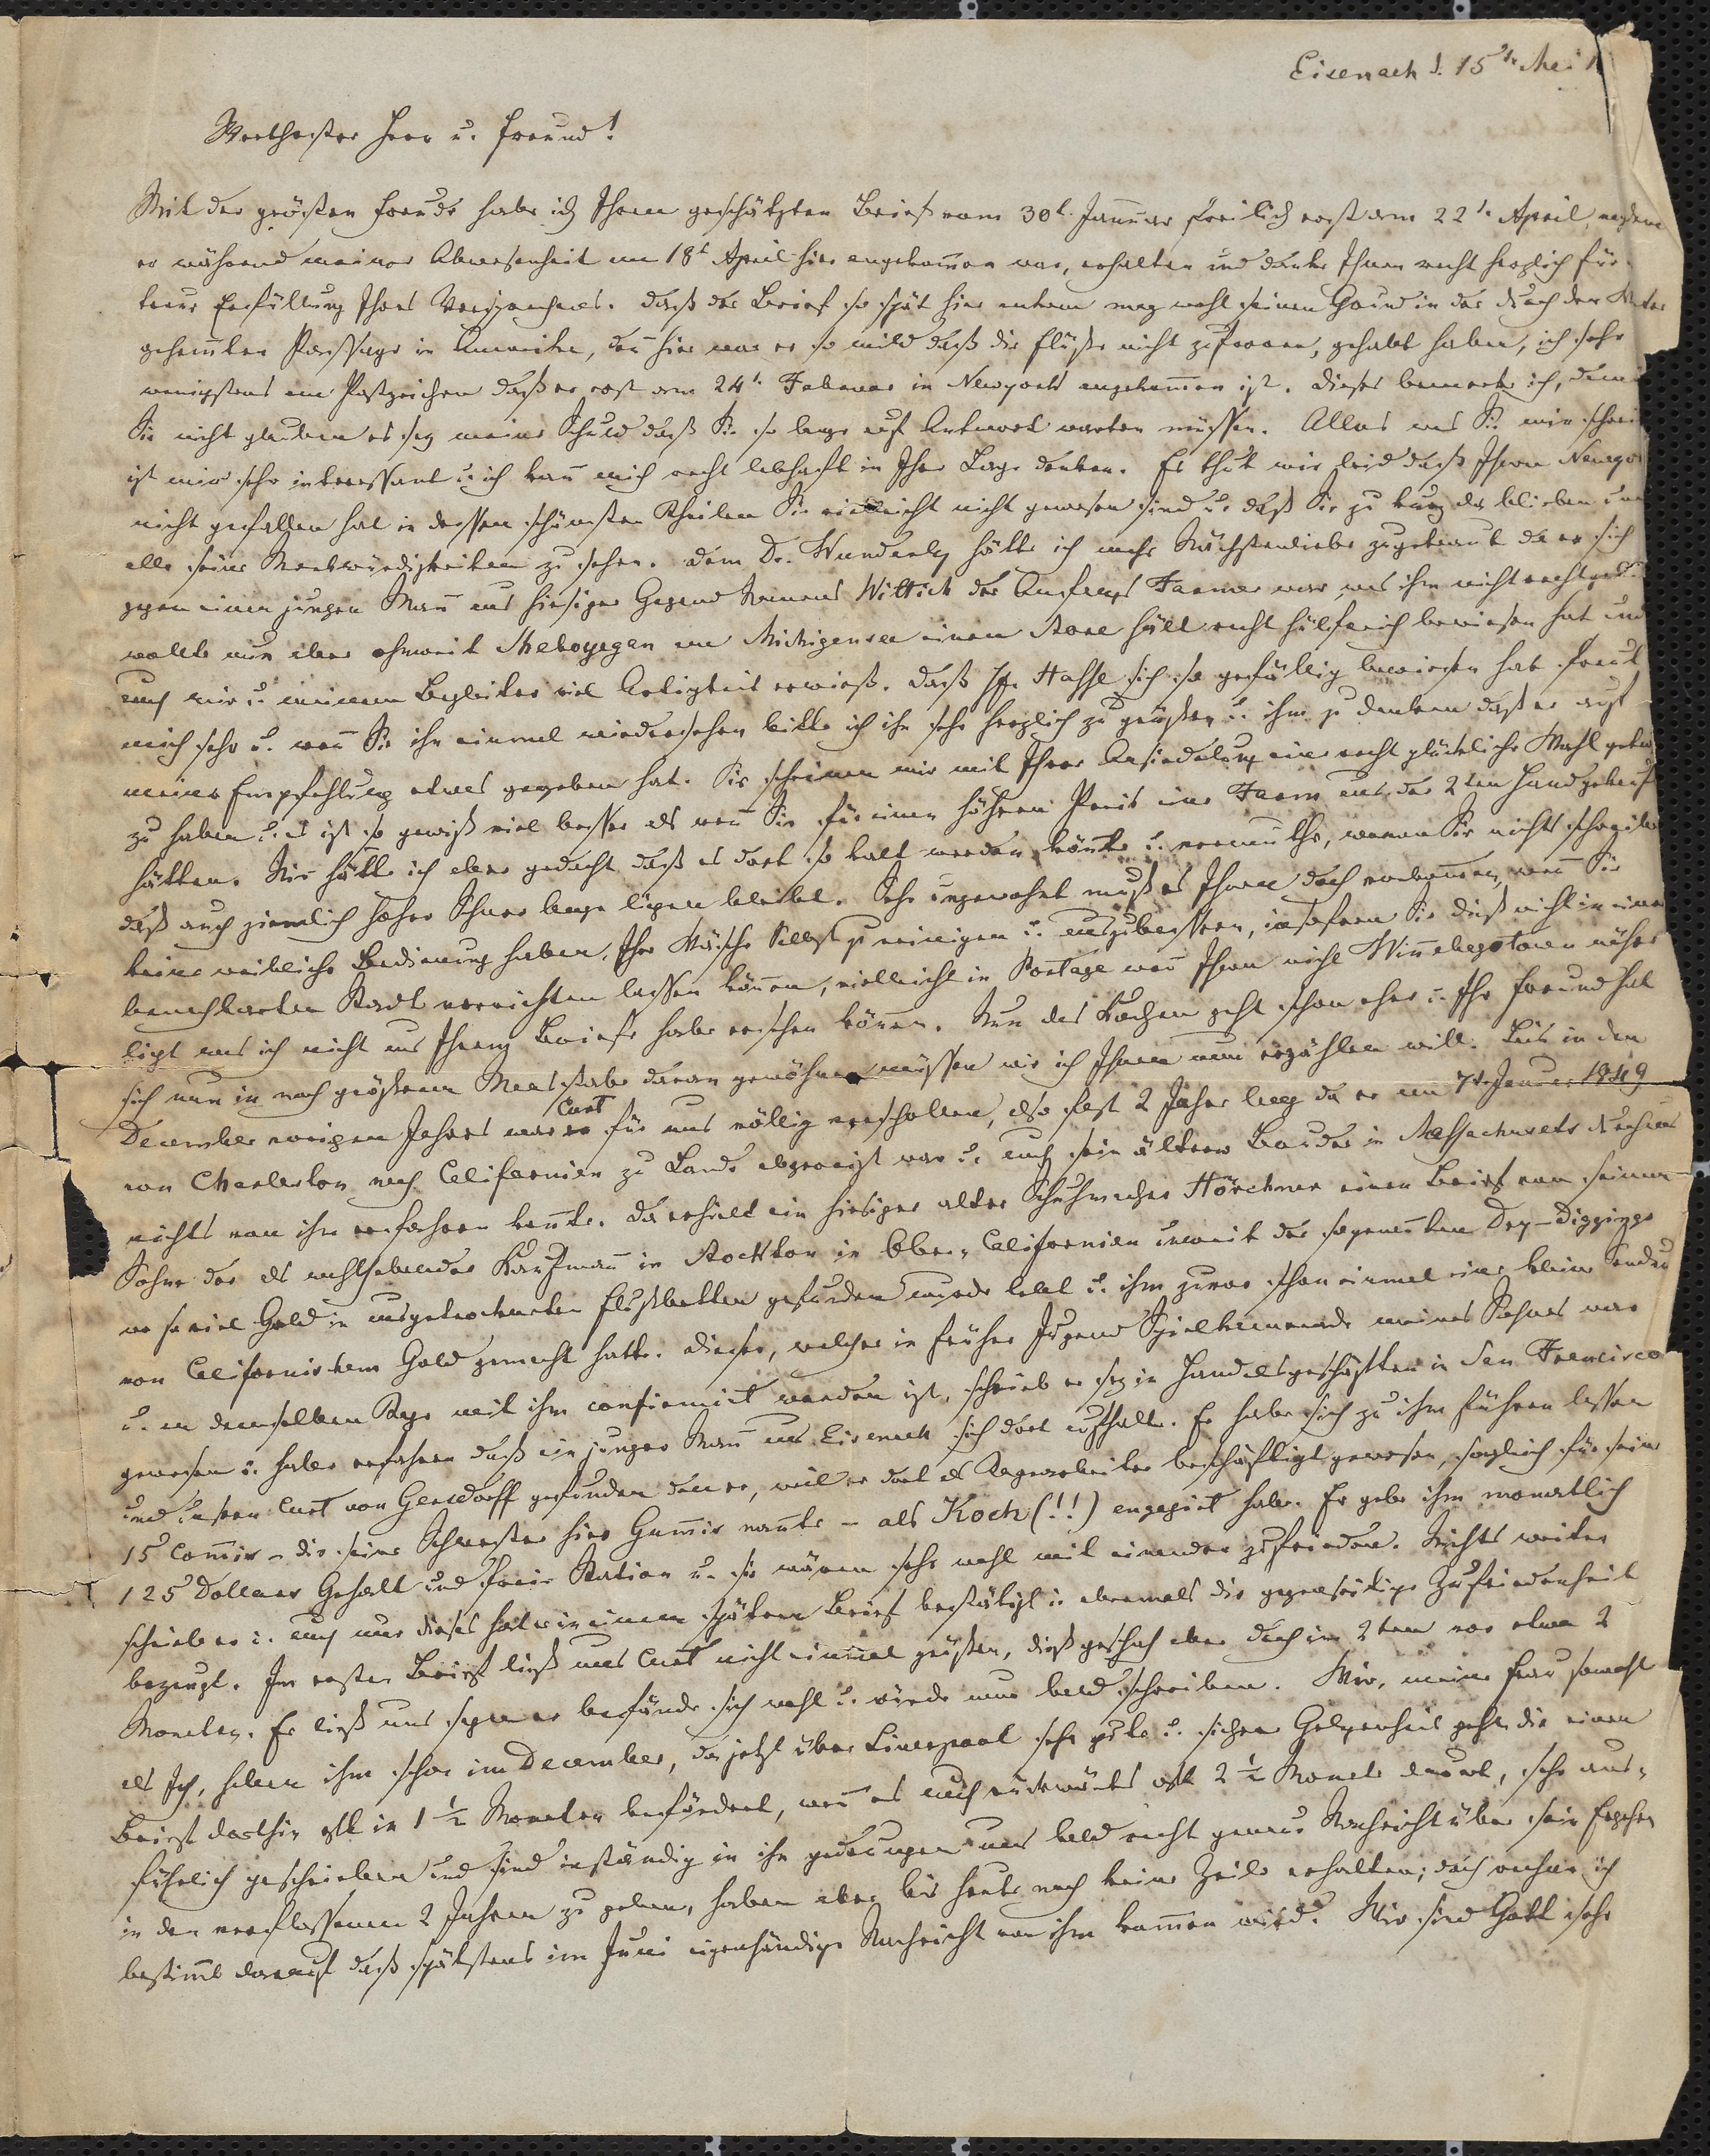 Eisenach d. 15ten Mai 1
Werthester Herr u. Freund!
Mit der größten Freude habe ich Ihren geschätzten Brief vom 30t. Januar freilich erst am 22t. April, nachdem
er während meiner Abwesenheit am 18t April hier angekom̄en war, erhalten und danke Ihnen recht herzlich für
treue Erfüllung Ihres Versprechens. Daß der Brief so spät hier ankam mag wohl seinen Grund in der durch den Winter
gehem̄ten Passage in Amerika, den̄ hier war es so mild daß die Flüße nicht zufroren, gehabt haben, ich sehe
wenigstens am Postzeichen daß er erst am 24t. Februar in Newyork angekom̄en ist. Dieses bemerke ich, damit
Sie nicht glauben es sey meine Schuld daß Sie so lange auf Antwort warten müssen. Alles was Sie mir schrei
ist mir sehr interessant u. ich kan̄ mich recht lebhaft in Ihre Lage denken. Es thut mir leid daß Ihnen Newyor
nicht gefallen hat in dessen schönsten Theilen Sie vielleicht nicht gewesen sind u. daß Sie zu kurz da blieben um
alle seine Merkwürdigkeiten zu sehen. Dem Dr. Wunderly hätte ich mehr Nächstenliebe zugetraut da er sich
gegen einen jungen Man̄ aus hiesiger Gegend Namens Wittich der Anfangs Farmer war, was ihm nicht recht
wollte nun aber ohnweit Sheboygan am Michigansee einen Store hält recht hülfreich bewiesen hat und
auch mir u. meinem Begleiter viel Artigkeit erwieß. Daß Hr. Hasse sich so gefällig bewiesen hat freut
mich sehr u. wen̄ Sie ihn einmal wiedersehen bitte ich ihn sehr herzlich zu grüßen u. ihm zu danken daß er auf
meine Empfehlung etwas gegeben hat. Sie scheinen mir mit Ihrer Ansiedelung eine recht glückliche Wahl getro
zu haben u. es ist so gewiß viel besser als wen̄ Sie für einen höhern Preis eine Farm aus der 2ten Hand gekauft
hätten. Nie hätte ich aber gedacht daß es dort so kalt werden kön̄te u. vermuthe, wovon Sie nichts schreiben
daß auch ziemlich hoher Schnee lange liegen bleibt. Sehr ungewohnt muß es Ihnen doch vorkom̄en, wen̄ Sie
keine weibliche Bedienung haben, Ihre Wäsche selbst zu reinigen u. auszubessern, insofern Sie dieß nicht in einer
benachbarten Stadt verrichten lassen kön̄en, vielleicht in Portage wen̄ Ihnen nicht Win̄ebagotown näher
liegt was ich nicht aus Ihrem Briefe habe ersehen kön̄en. Nun das Kochen geht schon eher u. Ihr Freund hat
sich nun in noch größerem Maasstabe daran gewöhnen müssen wie ich Ihnen nun erzählen will. Bis in den
December vorigen Jahres war Curt für uns völlig verschollen, also fast 2 Jahre lang da er am 7t. Januar 1849
von Charleston nach Californien zu Lande abgereist war u. auch sein älterer Bruder in Massachusets durchaus
nichts von ihm erfahren kon̄te. Da erhielt ein hiesiger alter Schuhmacher Hörchner einen Brief von seinem
Sohne der als wohlhabender Kaufman̄ in Stockton in Ober-Californien unweit der sogenan̄ten Dry-Diggings
wo so viel Gold in ausgetrockneten Flußbetten gefunden wurde lebt u. ihm zuvor schon einmal eine kleine Sendu
von Californischem Gold gemacht hatte. Dieser, welcher in früher Jugend Spielkamerade meines Sohnes war
u. an demselben Tage mit ihm confirmirt worden ist, schrieb er sey in Handelsgeschäften in San Francisco
gewesen u. habe erfahren daß ein junger Man̄ aus Eisenach sich dort aufhalte. Er habe sich zu ihm führen lassen
und unsern Curt von Gersdorff gefunden den er, weil er dort als Tagearbeiter beschäftigt gewesen, sogleich für seine
15 Com̄is – die seine Schwester hier Gum̄is nan̄te – als Koch (!!) engagirt habe. Er gebe ihm monatlich
125 Dollars Gehalt und freie Station u. sie wären sehr wohl mit einander zufrieden. Nichts weiter
schrieb er u. auch nur dieses hat er in einem spätern Brief bestätigt u. abermals die gegenseitige Zufriedenheit
bezeugt. Im ersten Brief ließ uns Curt nicht einmal grüßen, dieß geschah aber doch im 2ten vor etwa 2
Monaten. Er ließ uns sagen er befände sich wohl u. würde nun bald schreiben. Wir, meine Frau sowohl
als Ich, haben ihm schon im December, da jetzt über Liverpool sehr gute u. sichere Gelegenheit geht, die einen
Brief dorthin oft in 1 1/2 Monaten befördert, wen̄ es auch rückwärts oft 2 1/2 Monate dauert, sehr aus-
führlich geschrieben und sind inständig in ihn gedrungen uns bald recht genaue Nachricht über sein Ergehen
in den verflossenen 2 Jahren zu geben, haben aber bis heute noch keine Zeile erhalten; doch rechne ich
bestim̄t darauf daß spätstens im Juni eigenhändige Nachricht von ihm kom̄en wird. Wir sind Gott sehr